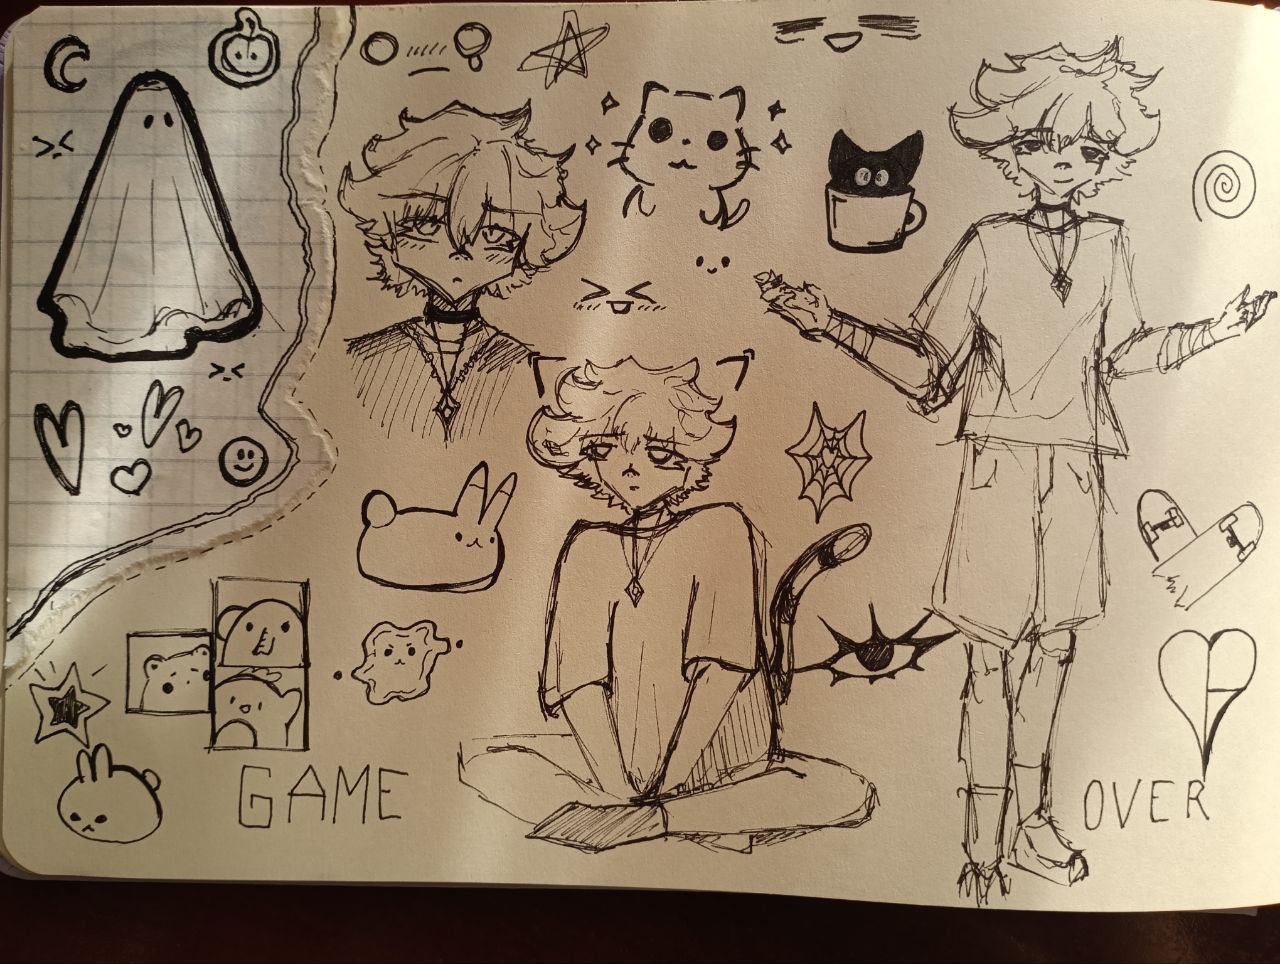 >.<
>.<
GAME
OVER